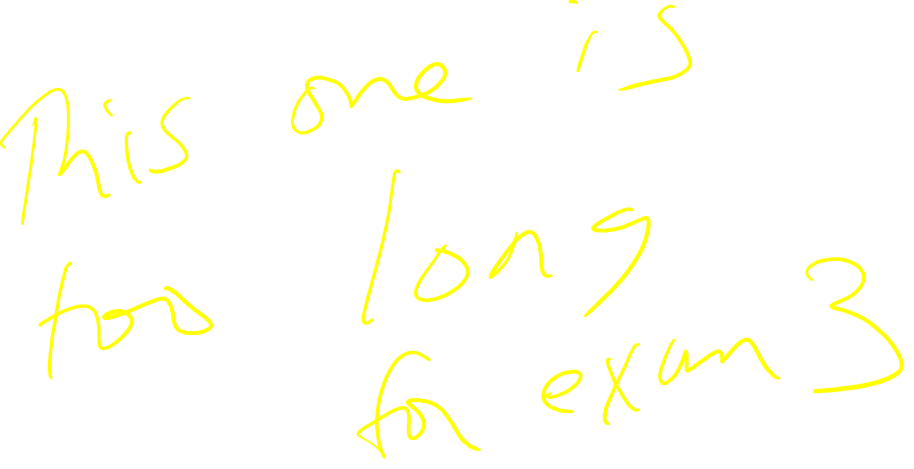 This one is
too long
for exam 3